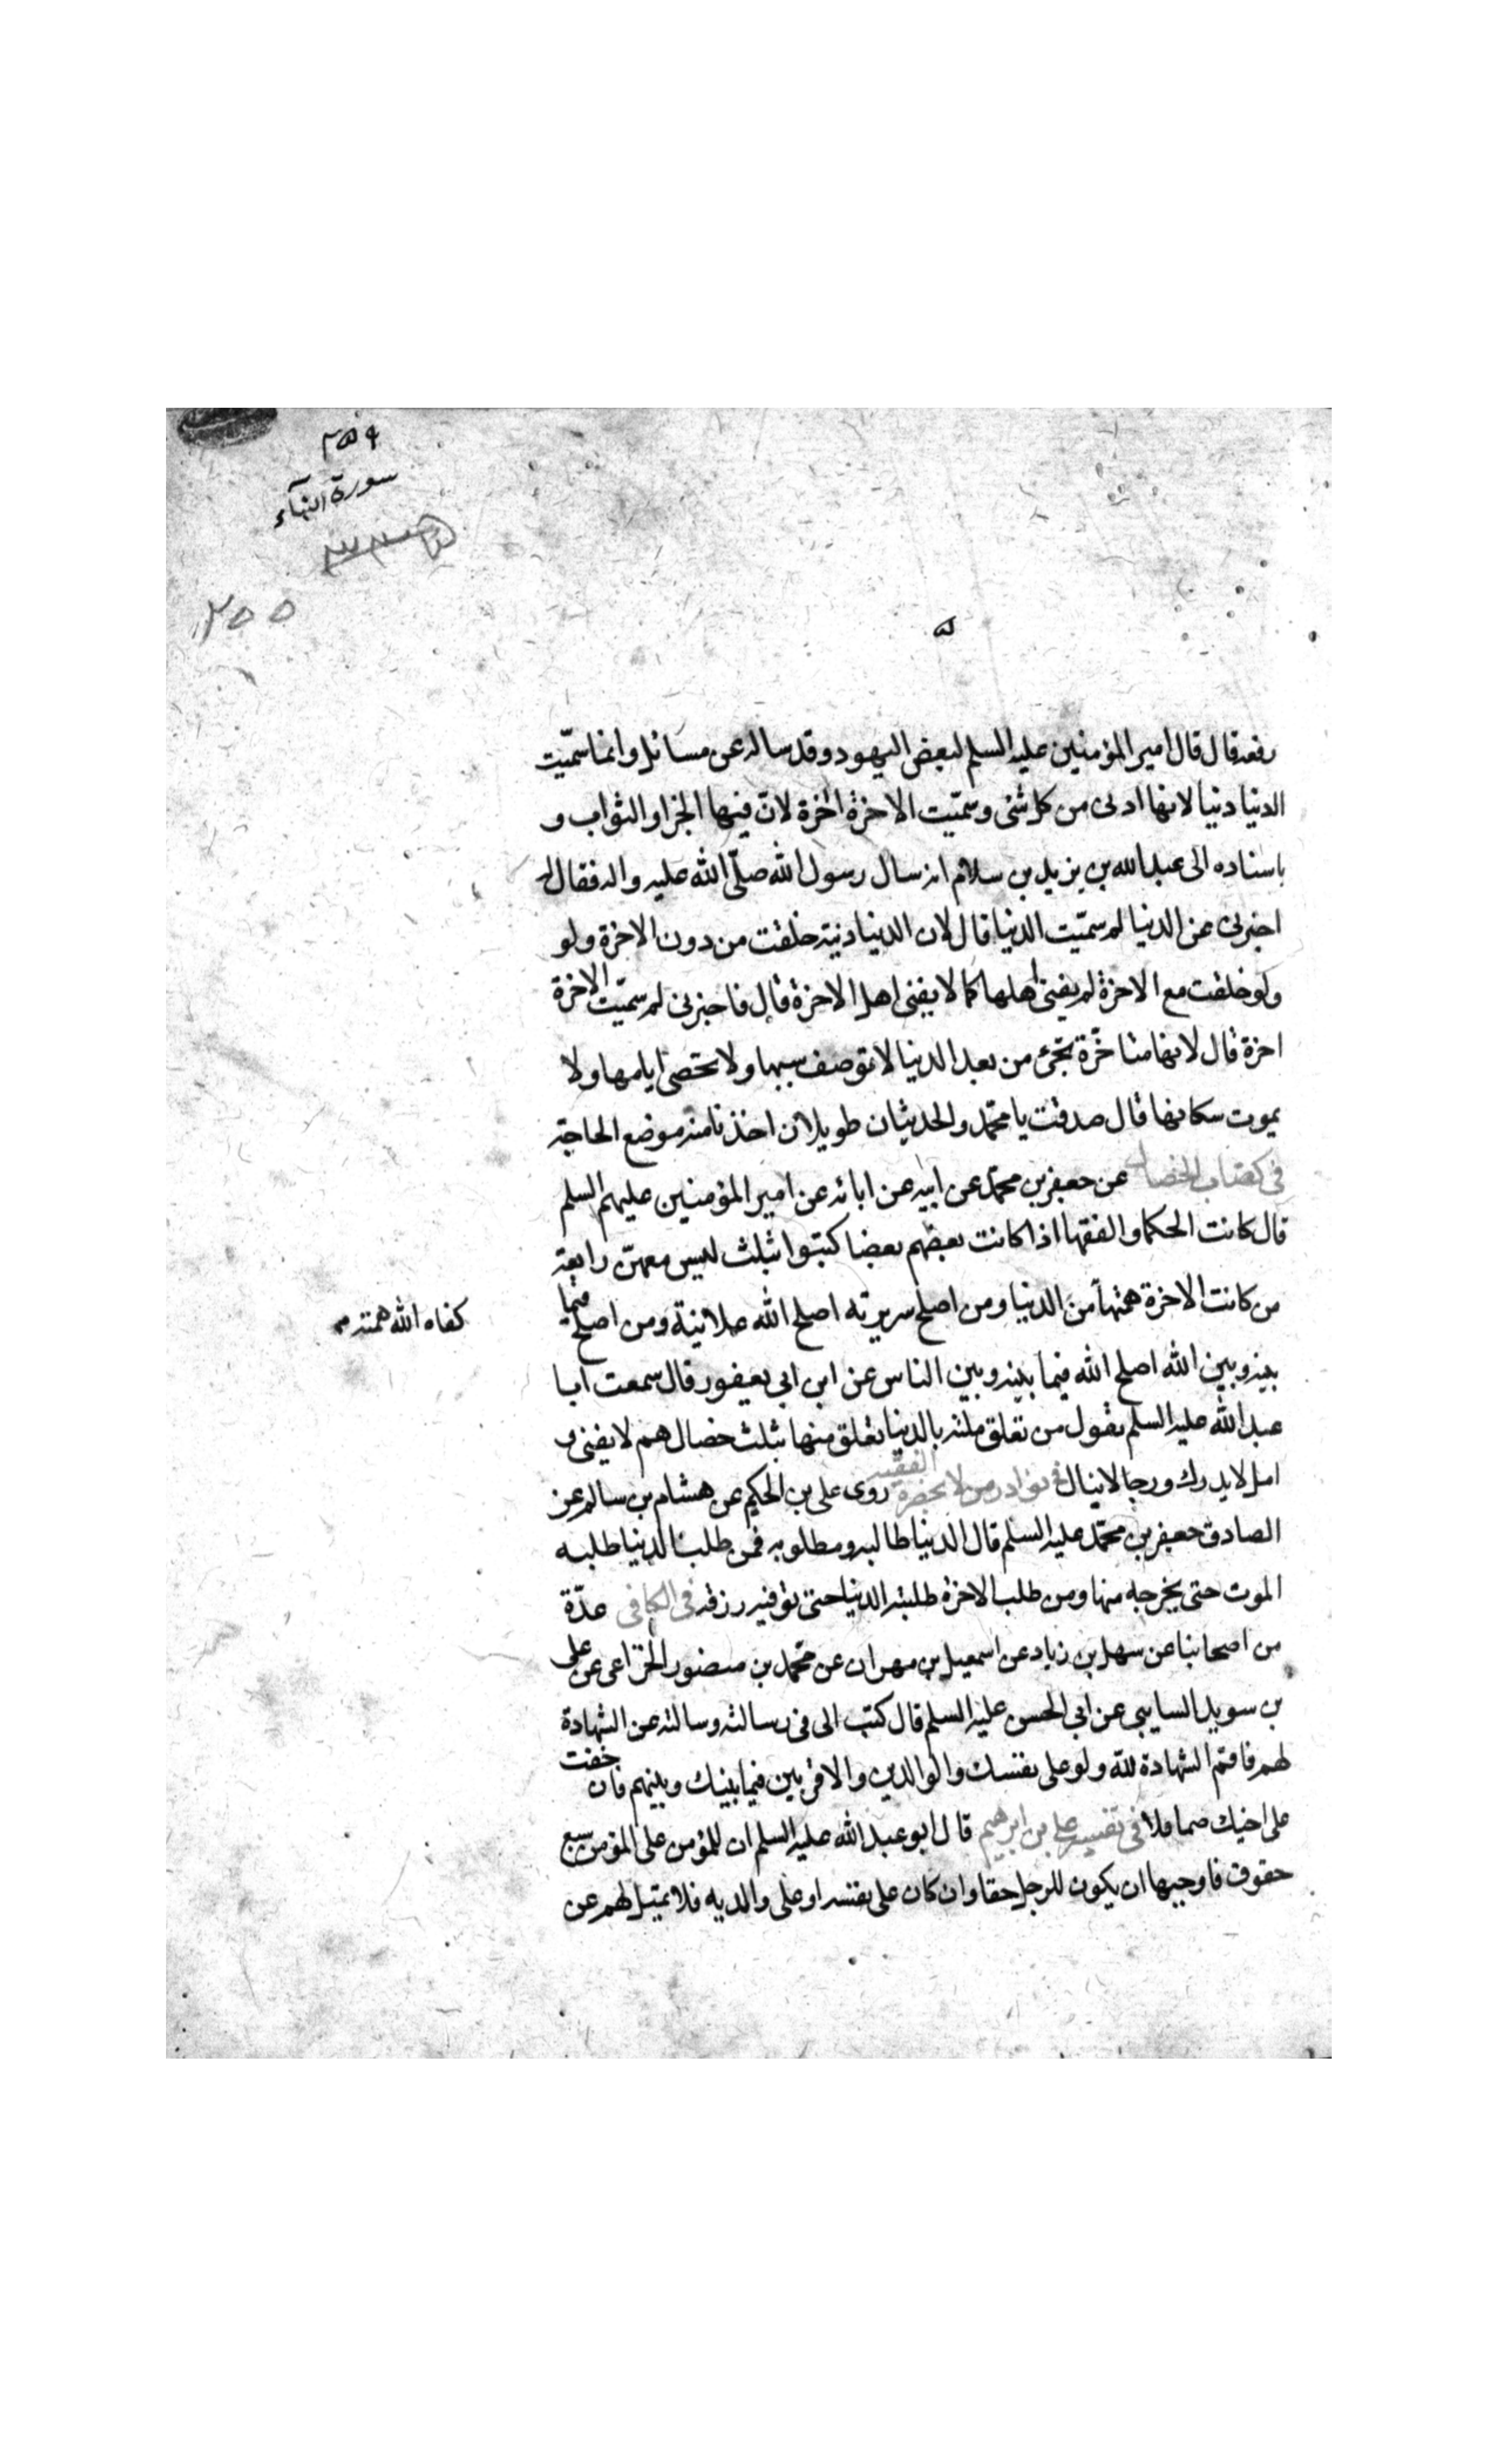 سورة النسآء
رفعه قال قال امير المؤمنين عليه السلم لبعض اليهود وقد ساله عن مسائل وانما سمّيت
الدنيا دنيا لانها ادنى من كل شئ وسمّيت الاخرة اخرة لانّ فيها الجزا والثواب و
باسناده الى عبد الله بن يزيد بن سلام انه سال رسول الله صلّى الله عليه واله فقال له
اخبرنى عن الدنيا لم سمّيت الدنيا قال لان الدنيا دنية خلقت من دون الاخرة ولو
ولو خلقت مع الاخرة لم يفنى اهلها كما لا يفنى اهل الاخرة قال فاخبرنى لم سمّيت الاخرة
اخرة قال لانها متاخّرة تجئ من بعد الدنيا لا توصف سنيها ولا تحصى ايامها ولا
يموت سكانها قال صدقت يا محمّد والحديثان طويلان اخذنا منه موضع الحاجة
فى كتاب الخصال عن جعفر بن محمّد عن ابيه عن ابائه عن امير المؤمنين عليهم السلم
قال كانت الحكما والفقها اذا كانت بعضهم بعضا كتبوا بثلث ليس معهنّ رابعة
من كانت الاخرة همّه من الدنيا ومن اصلح سريرته اصلح الله علانية ومن اصلح فيما
كفاه الله همته
بينه وبين الله اصلح الله فيما بينه وبين الناس عن ابن ابى يعفور قال سمعت ابا
عبد الله عليه السلم يقول من تعلق قلبه بالدنيا تعلق منها بثلث خصال هم لا يفنى و
امل لا يدرك ورجا لا ينال فى نوادر من لا يحضره الفقيه روى على بن الحكيم عن هشام بن سالم عن
الصادق جعفر بن محمّد عليه السلم قال الدنيا طالبه ومطلوبه فمن طلب الدنيا طلبه
الموت حتى يخرجه منها ومن طلب الاخرة طلبته الدنيا حتى توفيه رزقه فى الكافى عدّة
من اصحابنا عن سهل بن زياد عن اسمعيل بن مهران عن محمّد بن منصور الخزاعى عن على
بن سويد السايى عن ابى الحسن عليه السلم قال كتب الى فى رسالته وسالته عن الشهادة
لهم فاقم الشهادة لله ولو على نفسك والوالدين والاقربين فيما بينك وبينهم فان خفت
على اخيك ضما فلا فى تفسير على بن ابرهيم قال ابو عبد الله عليه السلم ان للمؤمن على المؤمن سبع
حقوق فاوجبها ان يكون للرجل حقا وان كان على نفسه او على والديه فلا يميل لهم عن